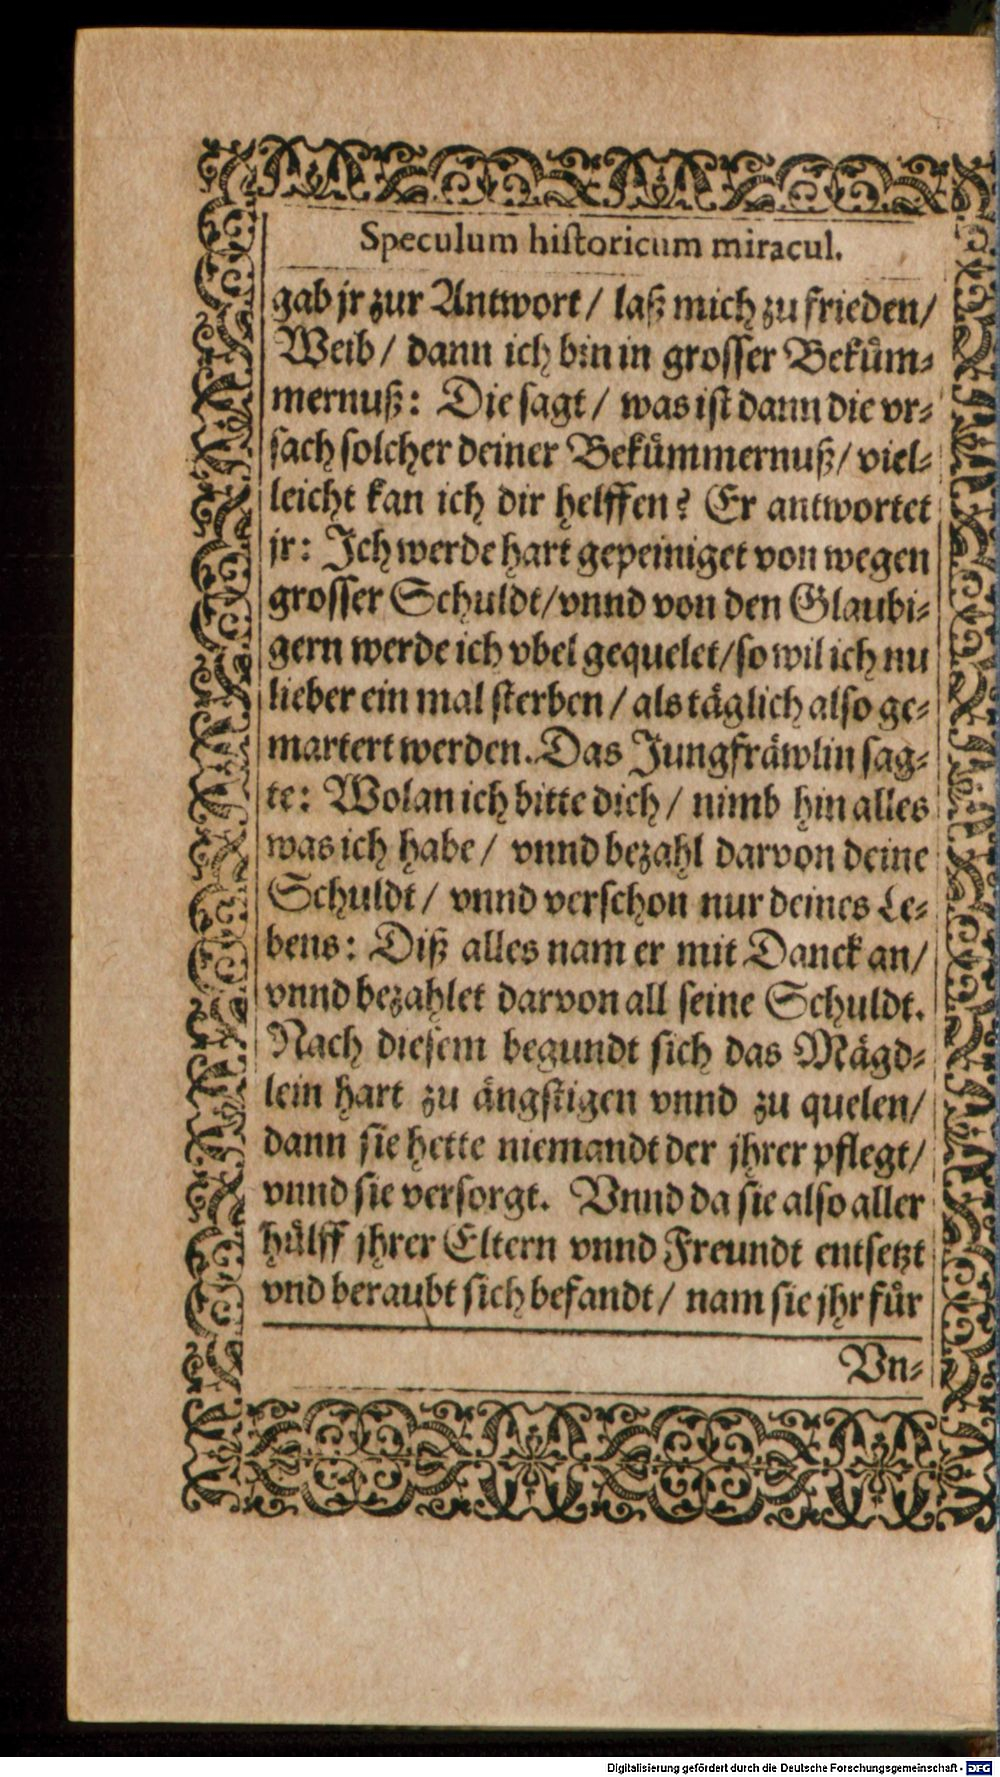 Speculum historicum miracul.
gab jr zur Antwort / laß mich zu frieden /
Weib / dann ich bin in grosser Bekům-
mernuß: Die sagt / was ist dann die vr-
sach solcher deiner Bekůmmernuß / viel-
leicht kan ich dir helffen? Er antwortet
jr: Ich werde hart gepeiniget von wegen
grosser Schuldt / vnnd von den Glaubi-
gern werde ich vbel gequelet / so wil ich nu
lieber ein mal sterben / als täglich also ge-
martert werden. Das Jungfräwlin sag-
te: Wolan ich bitte dich / nimb hin alles
was ich habe / vnnd bezahl darvon deine
Schuldt / vnnd verschon nur deines Le-
bens: Diß alles nam er mit Danck an /
vnnd bezahlet darvon all seine Schuldt.
Nach diesem begundt sich das Mägd-
lein hart zu ängstigen vnnd zu quelen /
dann sie hette niemandt der jhrer pflegt /
vnnd sie versorgt. Vnnd da sie also aller
hůlff jhrer Eltern vnnd Freundt entsetzt
vnd beraubt sich befandt / nam sie jhr fůr
Vn-
Digitalisierung gefördert durch die Deutsche Forschungsgemeinschaft - DFG